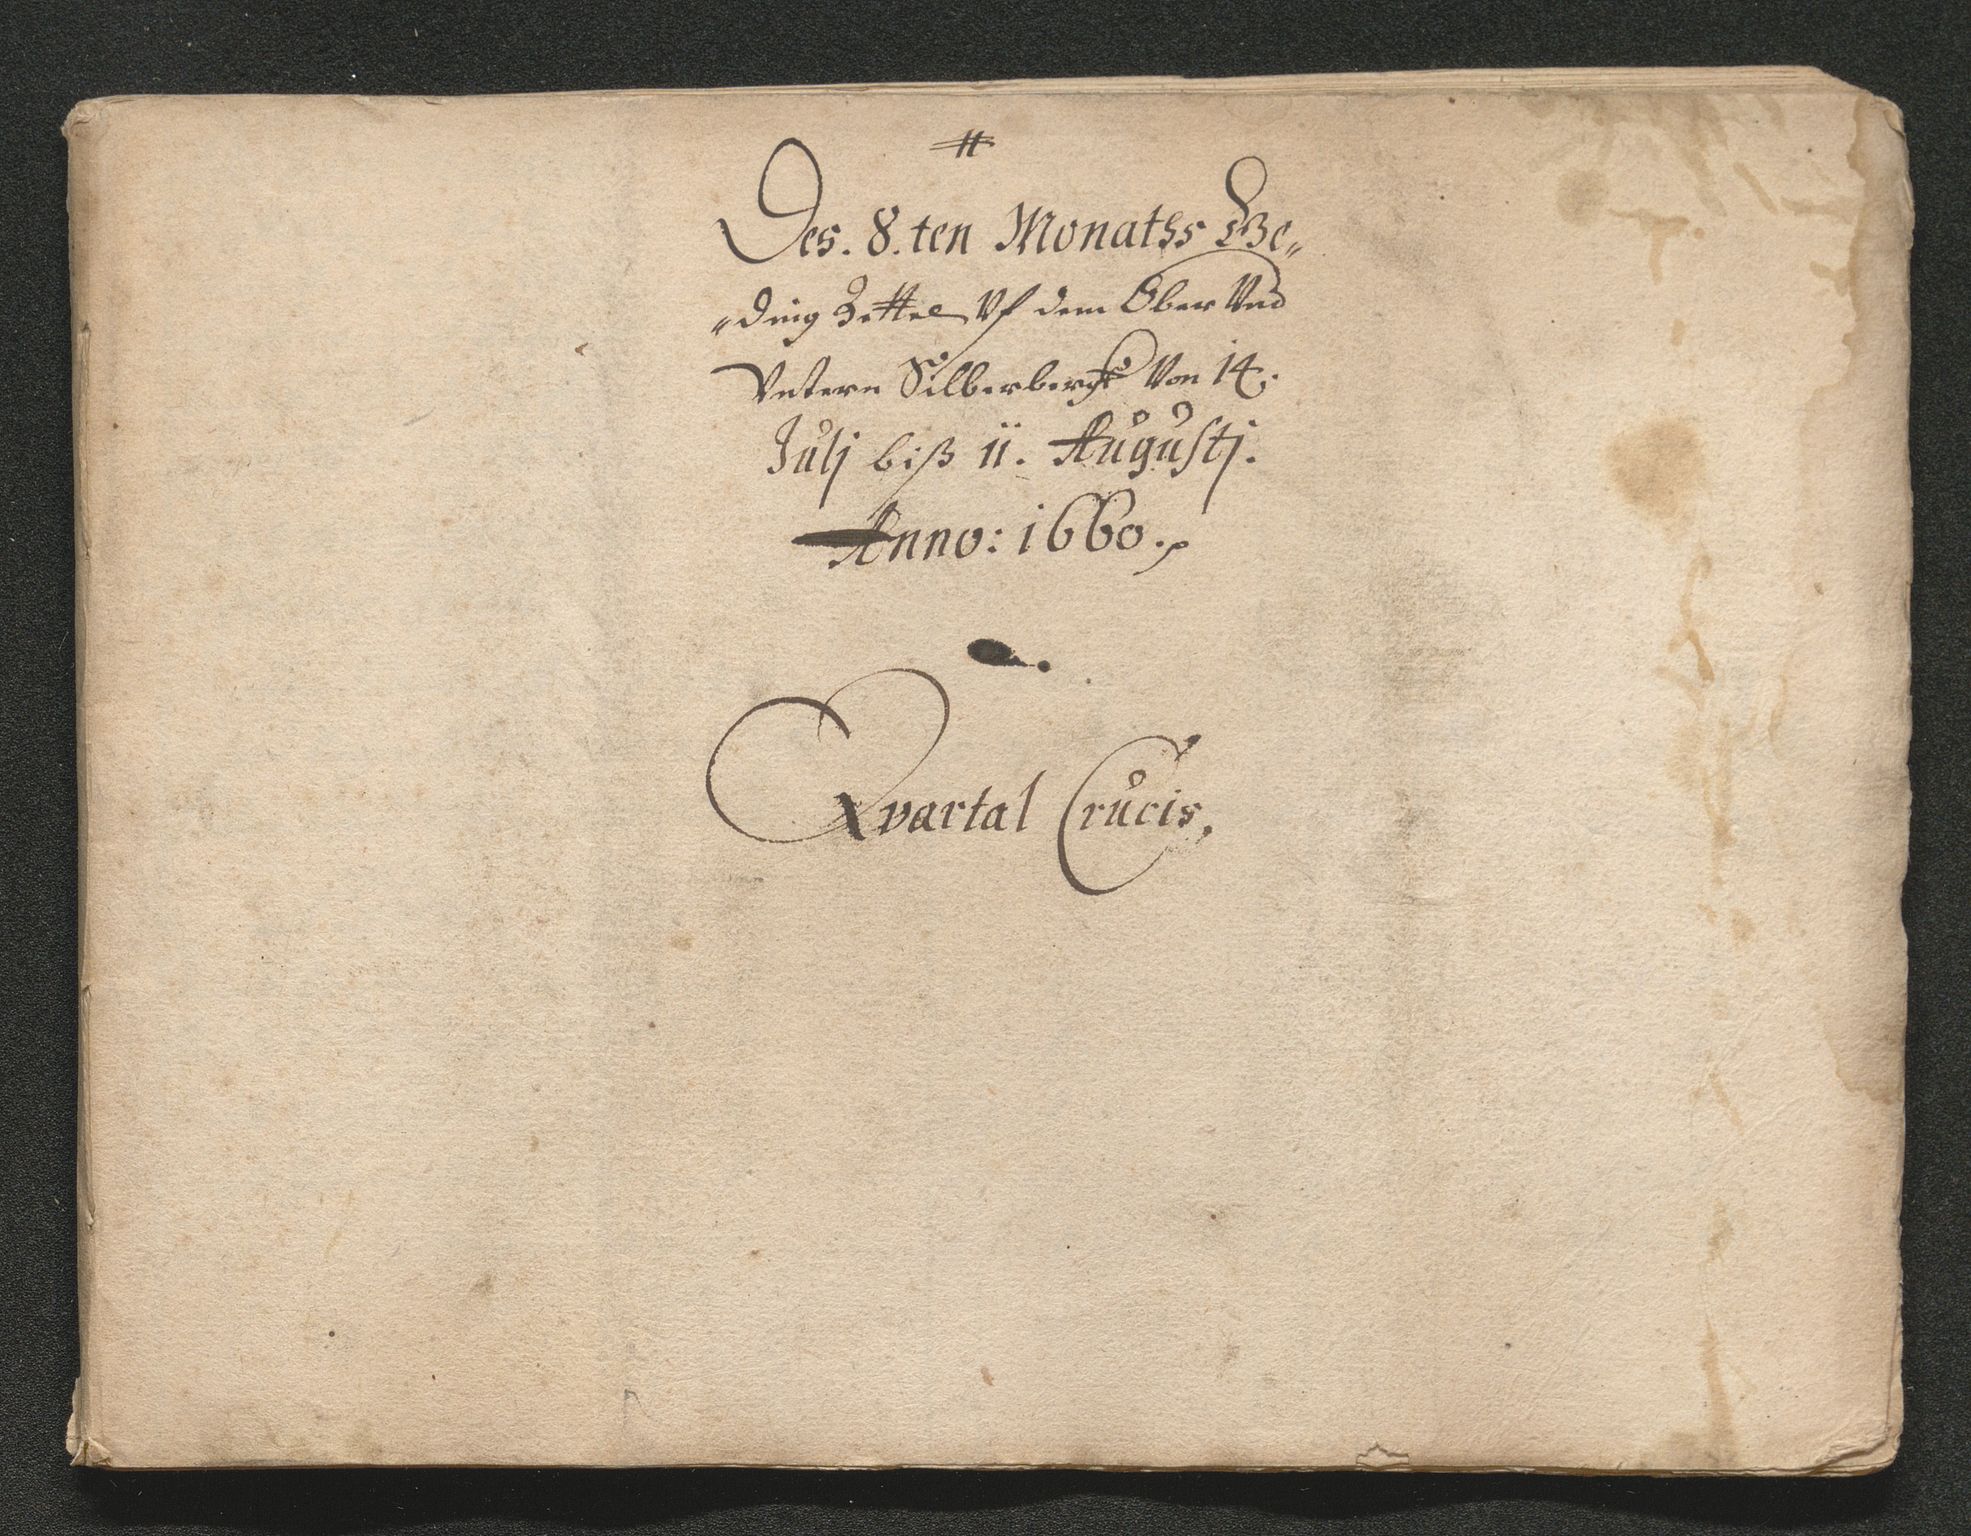 #
Des. 8.ten Monatss Ge„
„ding Zettel Vf dem Ober Vnd
Vntern Silberbergk Von 14.
Julj biß 11. Augustj.
Anno: 1660.
Qvartal Crucis,